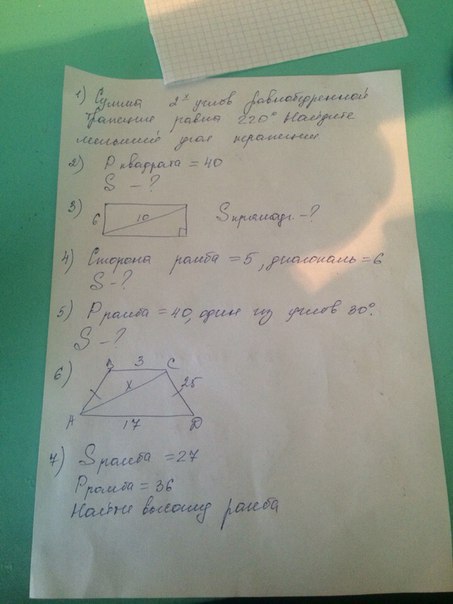 1) Сумма 2х углов равнобедренной
трапеции равна 220° Найдите
меньший угол трапеции
2) P квадрата = 40
S - ?
3) 6 10 Sпрямоуг - ?
4) Сторона ромба = 5, диагональ = 6
S - ?
5) P ромба = 40, один из углов 30°.
S - ?
6) B 3 C
X 25
A 17 D
7) S ромба = 27
P ромба = 36
Найти высоту ромба